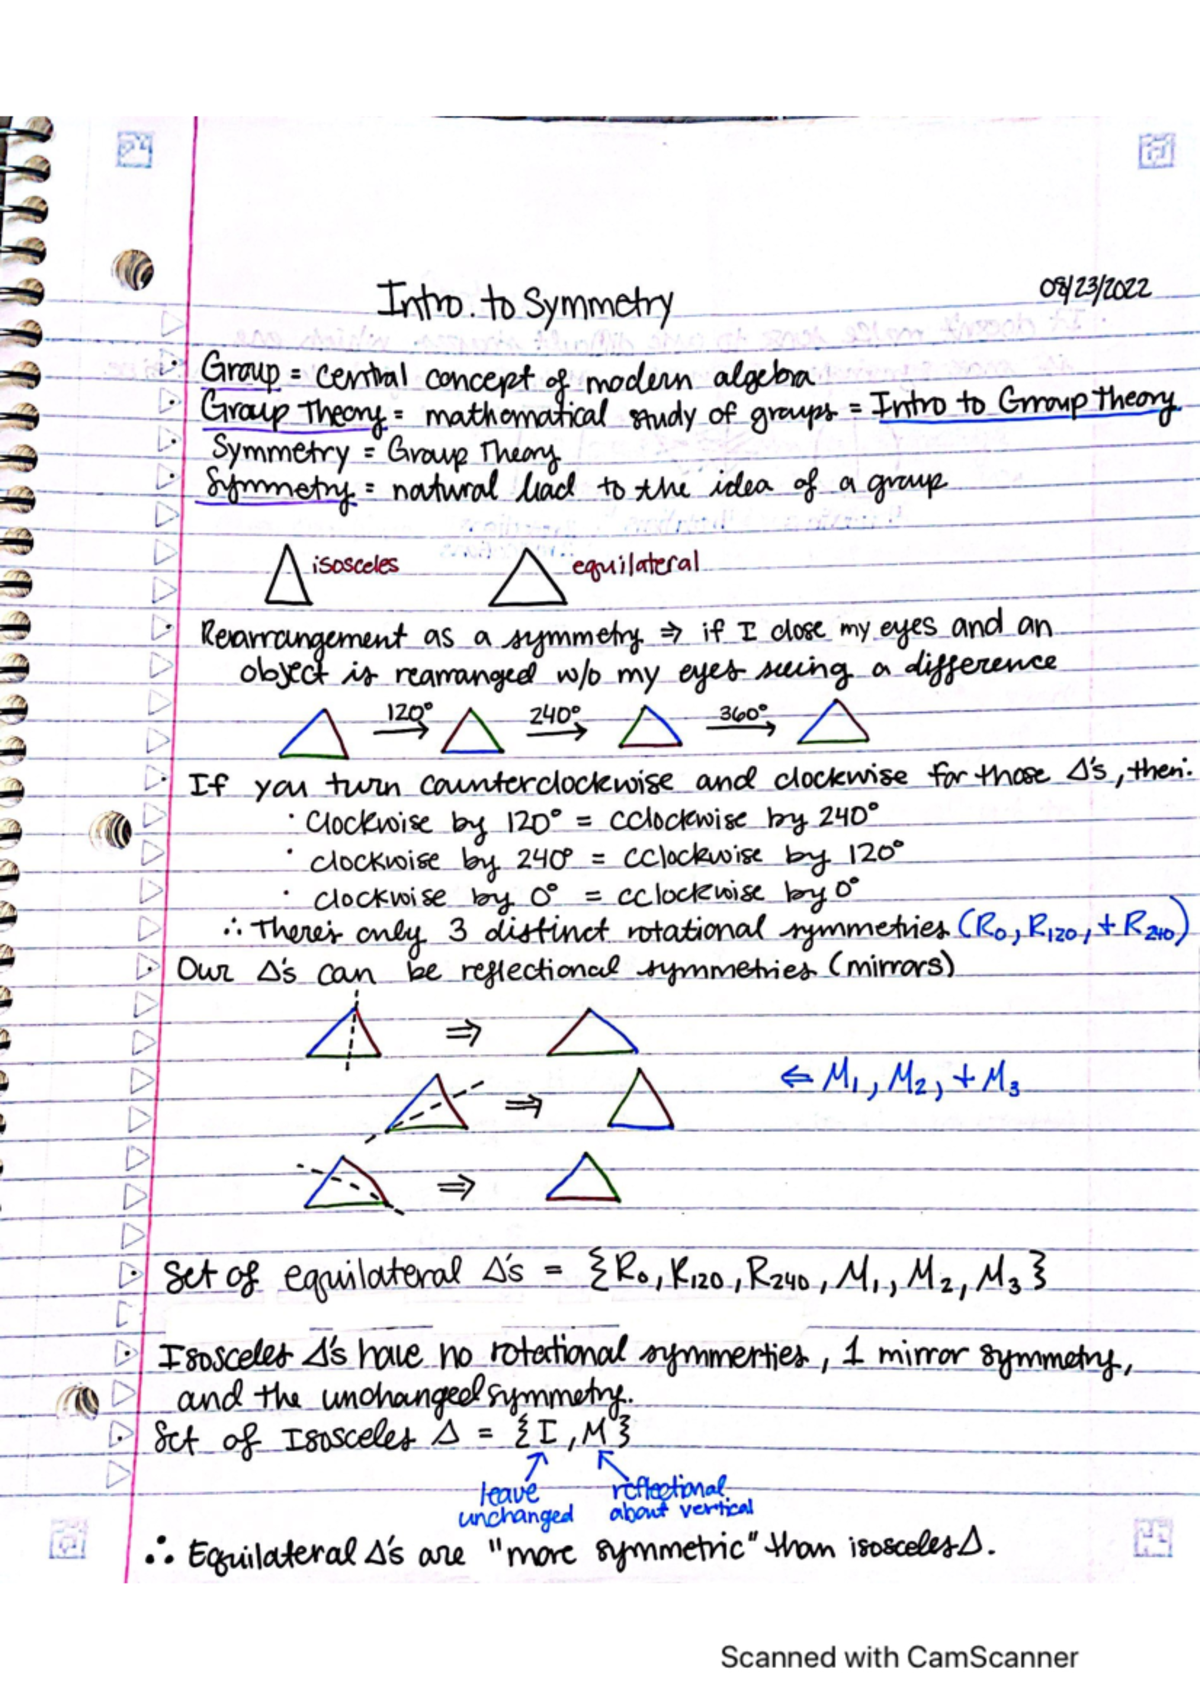 Intro. to Symmetry
08/23/2022
· Group = central concept of modern algebra
· Group Theory = mathematical study of groups = Intro to Grroup theory
· Symmetry = Group Theory
· Symmetry = natural lead to the idea of a group
isosceles
equilateral
· Rearrangement as a symmetry ⇒ if I close my eyes and an
object is rearranged w/o my eyes seeing a difference
120° 240° 360°
· If you turn counterclockwise and clockwise for those Δ's, then:
· Clockwise by 120° = cclockwise by 240°
· clockwise by 240° = cclockwise by 120°
· clockwise by 0° = cclockwise by 0°
∴ There's only 3 distinct rotational symmetries (R₀, R₁₂₀, + R₂₄₀)
· Our Δ's can be reflectional symmetries (mirrors)
⇒
⇐ M₁, M₂, + M₃
⇒
⇒
· Set of equilateral Δ's = {R₀, R₁₂₀, R₂₄₀, M₁, M₂, M₃}
· Isosceles Δ's have no rotational symmerties, 1 mirror symmetry,
and the unchanged symmetry.
· Set of Isosceles Δ = {I, M}
leave
unchanged
reflectional
about vertical
∴ Equilateral Δ's are "more symmetric" than isosceles Δ.
Scanned with CamScanner